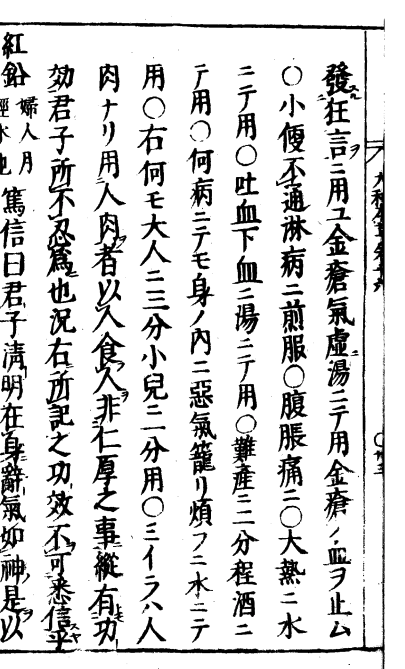 發狂言ニ用ユ金瘡氣虛湯ニテ用金瘡ノ血ヲ止ム
〇小便不通淋病ニ煎服〇腹脹痛ニ〇大熱ニ水
ニテ用〇吐血下血ニ湯ニテ用〇難產ニ二分程酒ニ
テ用〇何病ニテモ身ノ內ニ惡氣籠リ煩フニ水ニテ
用〇右何モ大人ニ三分小兒ニ一分用〇ミイラハ人
肉ナリ用人肉者以人食人非仁厚之事縱有功
効君子所不忍爲也況右所記之功效不可悉信乎
紅鉛 婦人月經水也 篤信曰君子淸明在身辭氣如神是以